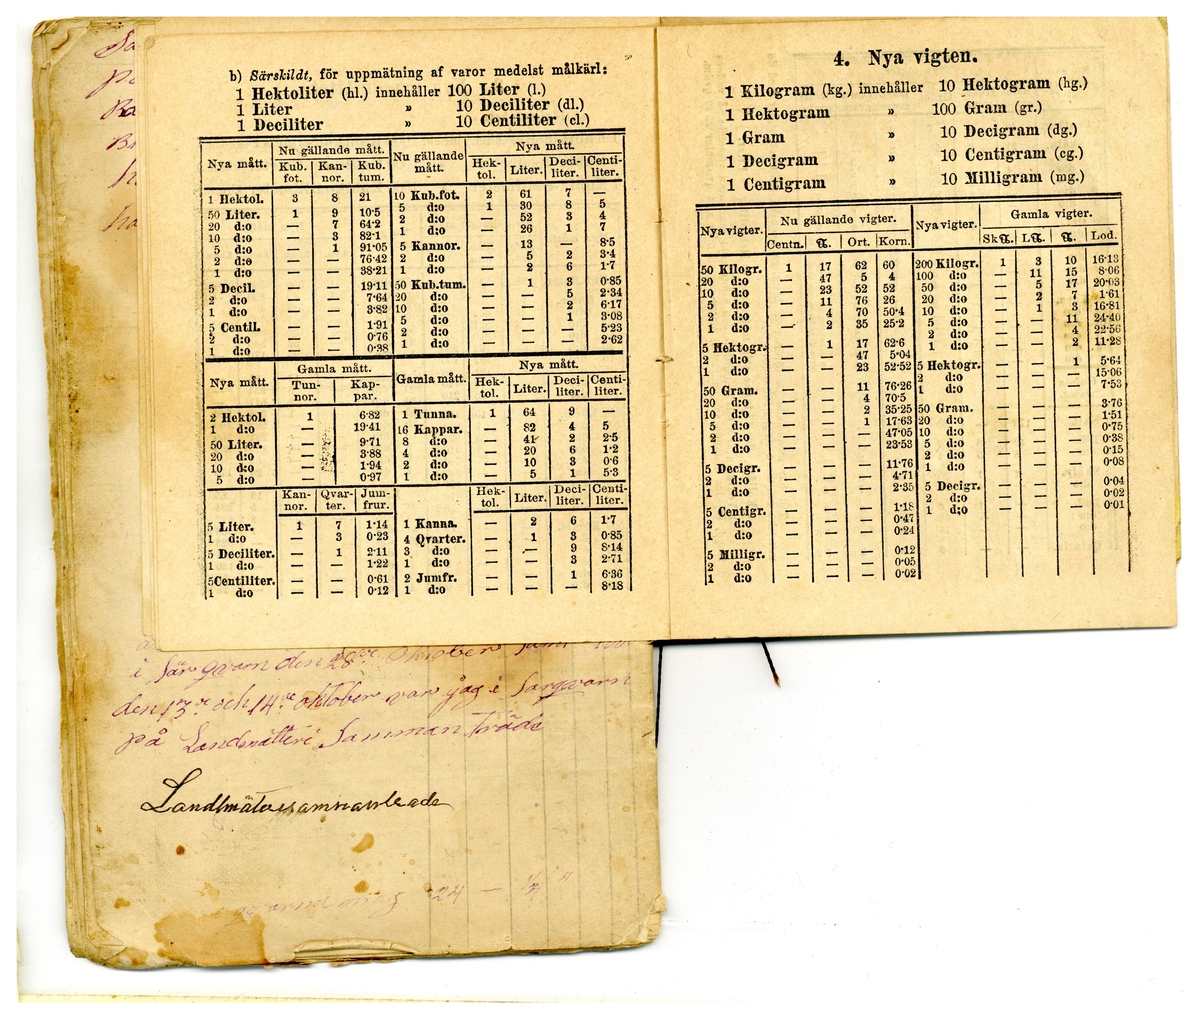 b) Särskildt, för uppmätning af varor medelst målkärl:
1 Hektoliter (hl.) innehåller 100 Liter (l.)
1 Liter » 10 Deciliter (dl.)
1 Deciliter » 10 Centiliter (cl.)
Nya mått. Nu gällande mått. Nu gällande mått. Nya mått.
Kub. fot. Kan-nor. Kub. tum. Hek-tol. Liter. Deci-liter. Centi-liter.
1 Hektol. 3 8 21 10 Kub.fot. 2 61 7 —
50 Liter. 1 9 10·5 5 d:o 1 30 8 5
20 d:o — 7 64·2 2 d:o — 52 3 4
10 d:o — 3 82·1 1 d:o — 26 1 7
5 d:o — 1 91·05 5 Kannor. — 13 — 8·5
2 d:o — — 76·42 2 d:o — 5 2 3·4
1 d:o — — 38·21 1 d:o — 2 6 1·7
5 Decil. — — 19·11 50 Kub.tum. — 1 3 0·85
2 d:o — — 7·64 20 d:o — — 5 2·34
1 d:o — — 3·82 10 d:o — — 2 6·17
5 Centil. — — 1·91 5 d:o — — 1 3·08
2 d:o — — 0·76 2 d:o — — — 5·23
1 d:o — — 0·38 1 d:o — — — 2·62
Nya mått. Gamla mått. Gamla mått. Nya mått.
Tun-nor. Kap-par. Hek-tol. Liter. Deci-liter. Centi-liter.
2 Hektol. 1 6·82 1 Tunna. 1 64 9 —
1 d:o — 19·41 16 Kappar. — 82 4 5
50 Liter. — 9·71 8 d:o — 41 2 2·5
20 d:o — 3·88 4 d:o — 20 6 1·2
10 d:o — 1·94 2 d:o — 10 3 0·6
5 d:o — 0·97 1 d:o — 5 1 5·3
Kan-nor. Qvar-ter. Jum-frur. Hek-tol. Liter. Deci-liter. Centi-liter.
5 Liter. 1 7 1·14 1 Kanna. — 2 6 1·7
1 d:o — 3 0·23 4 Qvarter. — 1 3 0·85
5 Deciliter. — 1 2·11 3 d:o — — 9 8·14
1 d:o — — 1·22 1 d:o — — 3 2·71
5 Centiliter. — — 0·61 2 Jumfr. — — 1 6·36
1 d:o — — 0·12 1 d:o — — — 8·18
4. Nya vigten.
1 Kilogram (kg.) innehåller 10 Hektogram (hg.)
1 Hektogram » 100 Gram (gr.)
1 Gram » 10 Decigram (dg.)
1 Decigram » 10 Centigram (cg.)
1 Centigram » 10 Milligram (mg.)
Nya vigter. Nu gällande vigter. Nya vigter. Gamla vigter.
Centn. ℔. Ort. Korn. Sk℔. L℔. ℔. Lod.
50 Kilogr. 1 17 62 60 200 Kilogr. 1 3 10 16·13
20 d:o — 47 5 4 100 d:o — 11 15 8·06
10 d:o — 23 52 52 50 d:o — 5 17 20·03
5 d:o — 11 76 26 20 d:o — 2 7 1·61
2 d:o — 4 70 50·4 10 d:o — 1 3 16·81
1 d:o — 2 35 25·2 5 d:o — — 11 24·40
5 Hektogr. — 1 17 62·6 2 d:o — — 4 22·56
2 d:o — — 47 5·04 1 d:o — — 2 11·28
1 d:o — — 23 52·52 5 Hektogr. — — 1 5·64
50 Gram. — — 11 76·26 2 d:o — — — 15·06
20 d:o — — 4 70·5 1 d:o — — — 7·53
10 d:o — — 2 35·25 50 Gram. — — — 3·76
5 d:o — — 1 17·63 20 d:o — — — 1·51
2 d:o — — — 47·05 10 d:o — — — 0·75
1 d:o — — — 23·53 5 d:o — — — 0·38
5 Decigr. — — — 11·76 2 d:o — — — 0·15
2 d:o — — — 4·71 1 d:o — — — 0·08
1 d:o — — — 2·35 5 Decigr. — — — 0·04
5 Centigr. — — — 1·18 2 d:o — — — 0·02
2 d:o — — — 0·47 1 d:o — — — 0·01
1 d:o — — — 0·24
5 Milligr. — — — 0·12
2 d:o — — — 0·05
1 d:o — — — 0·02
i Särqvarn den 28de Oktober samt
den 13de och 14de oktober var jag i Sarqvarn
på Landmätteri Samman träde
Landtmäterisammanträde
24 —